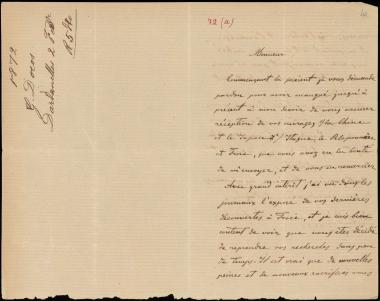 32 (a)
1872
G. Docos
Dardanelles 2 Févr.
Monsieur
Commençant la présente je vous demande
pardon pour avoir manqué jusqu'à
présent à mon devoir de vous accuser
réception de vos ouvrages "La Chine
et le Japon" et "Ithaque, le Péloponnèse
et Troie, que vous avez eu la bonté
de m'envoyer, et de vous en remercier
Avec grand intérêt j'ai vu dans les
journaux l'exposé de vos dernières
découvertes à Troie, et je suis bien
content de voir que vous êtes décidé
de reprendre vos recherches dans peu
de temps. Il est vrai que de nouvelles
peines et de nouveaux sacrifices vous